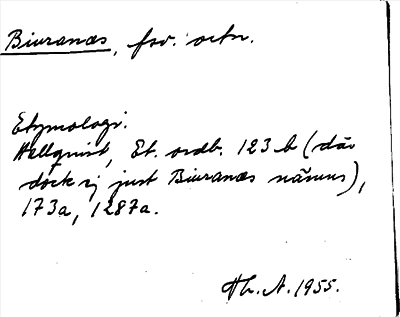 Biuranæs, fsv. ortn.
Etymologi.
Hellquist, Et. ordb. 123 b (där
dock ej just Biuranæs nämns),
173a, 1287a.
Th. A. 1955.